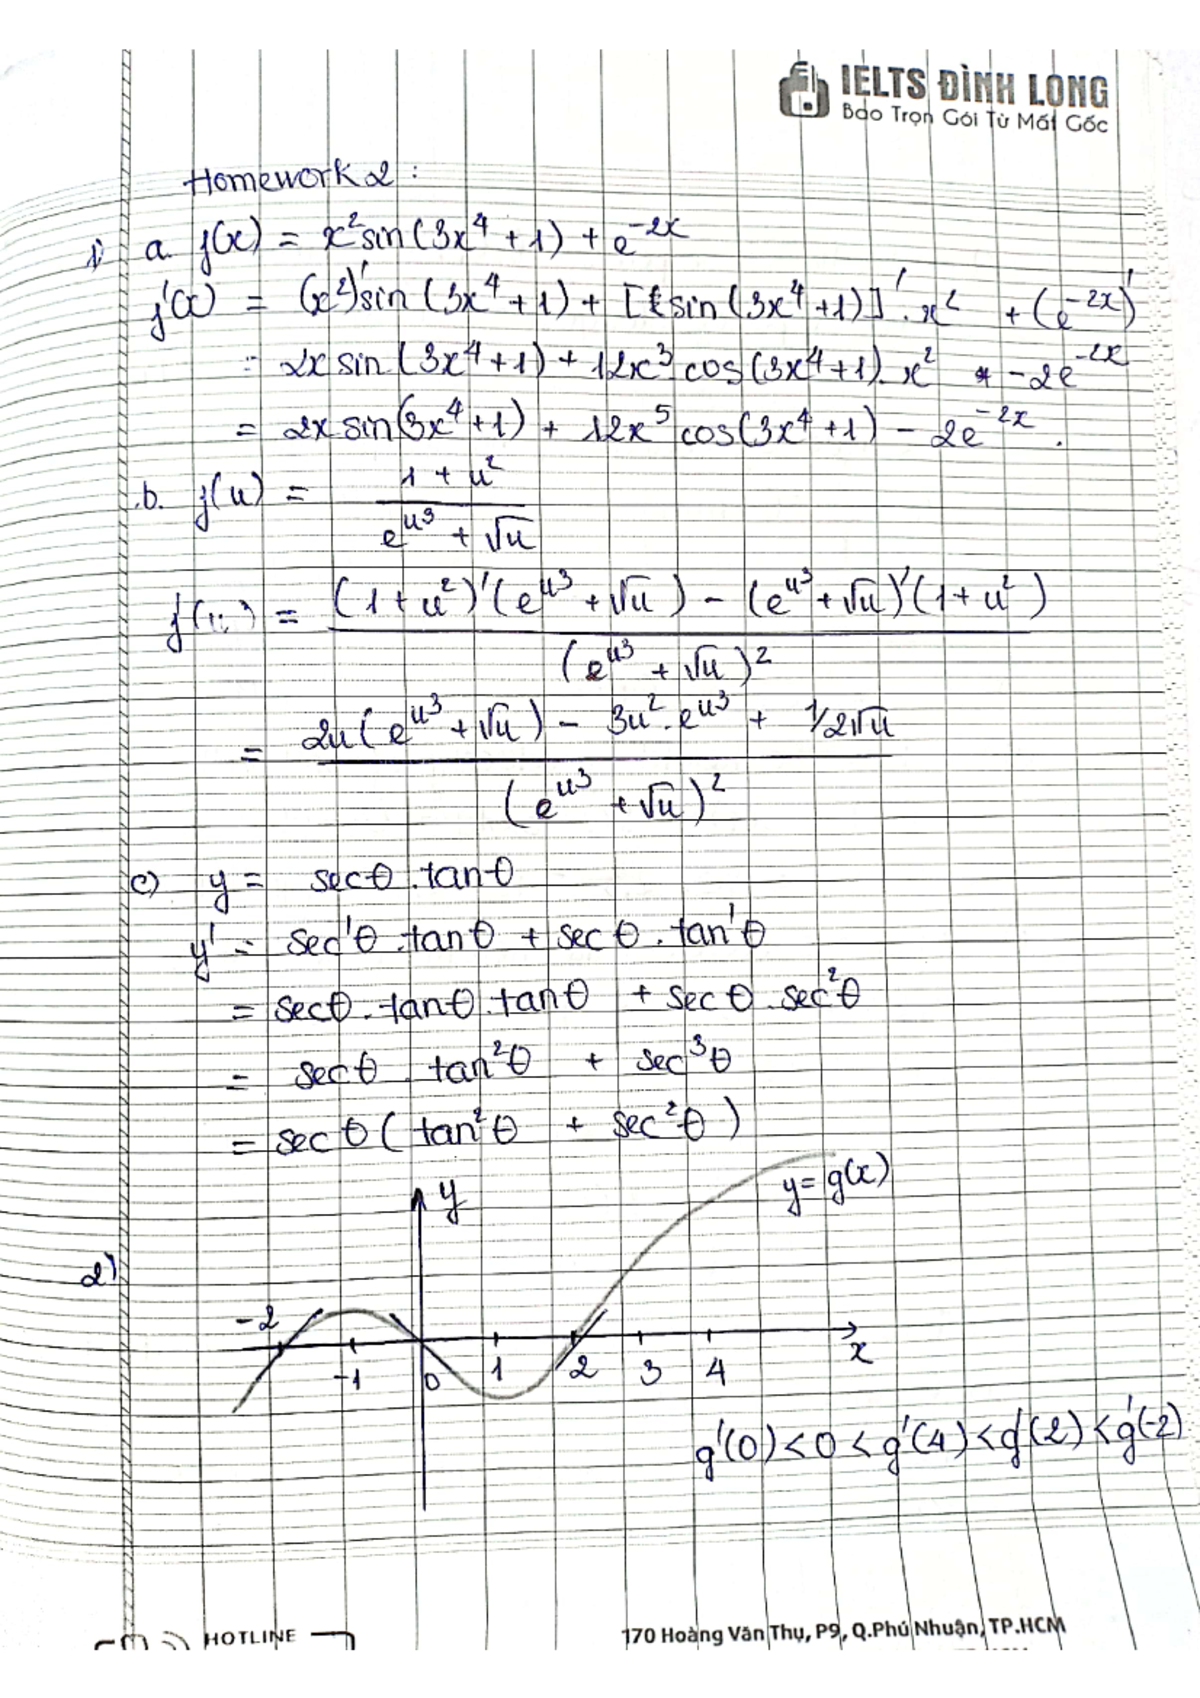 IELTS ĐÌNH LONG
Bao Trọn Gói Từ Mất Gốc
Homework 2 :
1) a. f(x) = x²sin(3x⁴ + 1) + e⁻²ˣ
f'(x) = (x²)'sin(3x⁴ + 1) + [sin(3x⁴ + 1)]' . x² + (e⁻²ˣ)'
= 2x sin(3x⁴ + 1) + 12x³ cos(3x⁴ + 1). x² + -2e⁻²ˣ
= 2x sin(3x⁴ + 1) + 12x⁵ cos(3x⁴ + 1) - 2e⁻²ˣ .
b. f(u) = (1 + u²) / (e^(u³) + √u)
f'(u) = ((1 + u²)'(e^(u³) + √u) - (e^(u³) + √u)'(1 + u²)) / (e^(u³) + √u)²
= (2u(e^(u³) + √u) - 3u² . e^(u³) + 1/2√u) / (e^(u³) + √u)²
c) y = secθ . tanθ
y' = sec'θ . tanθ + secθ . tan'θ
= secθ . tanθ . tanθ + secθ . sec²θ
= secθ . tan²θ + sec³θ
= secθ ( tan²θ + sec²θ )
y = g(x)
y
2)
-2
-1 0 1 2 3 4 x
g'(0) < 0 < g'(4) < g'(2) < g'(-2)
HOTLINE
170 Hoàng Văn Thụ, P9, Q.Phú Nhuận, TP.HCM